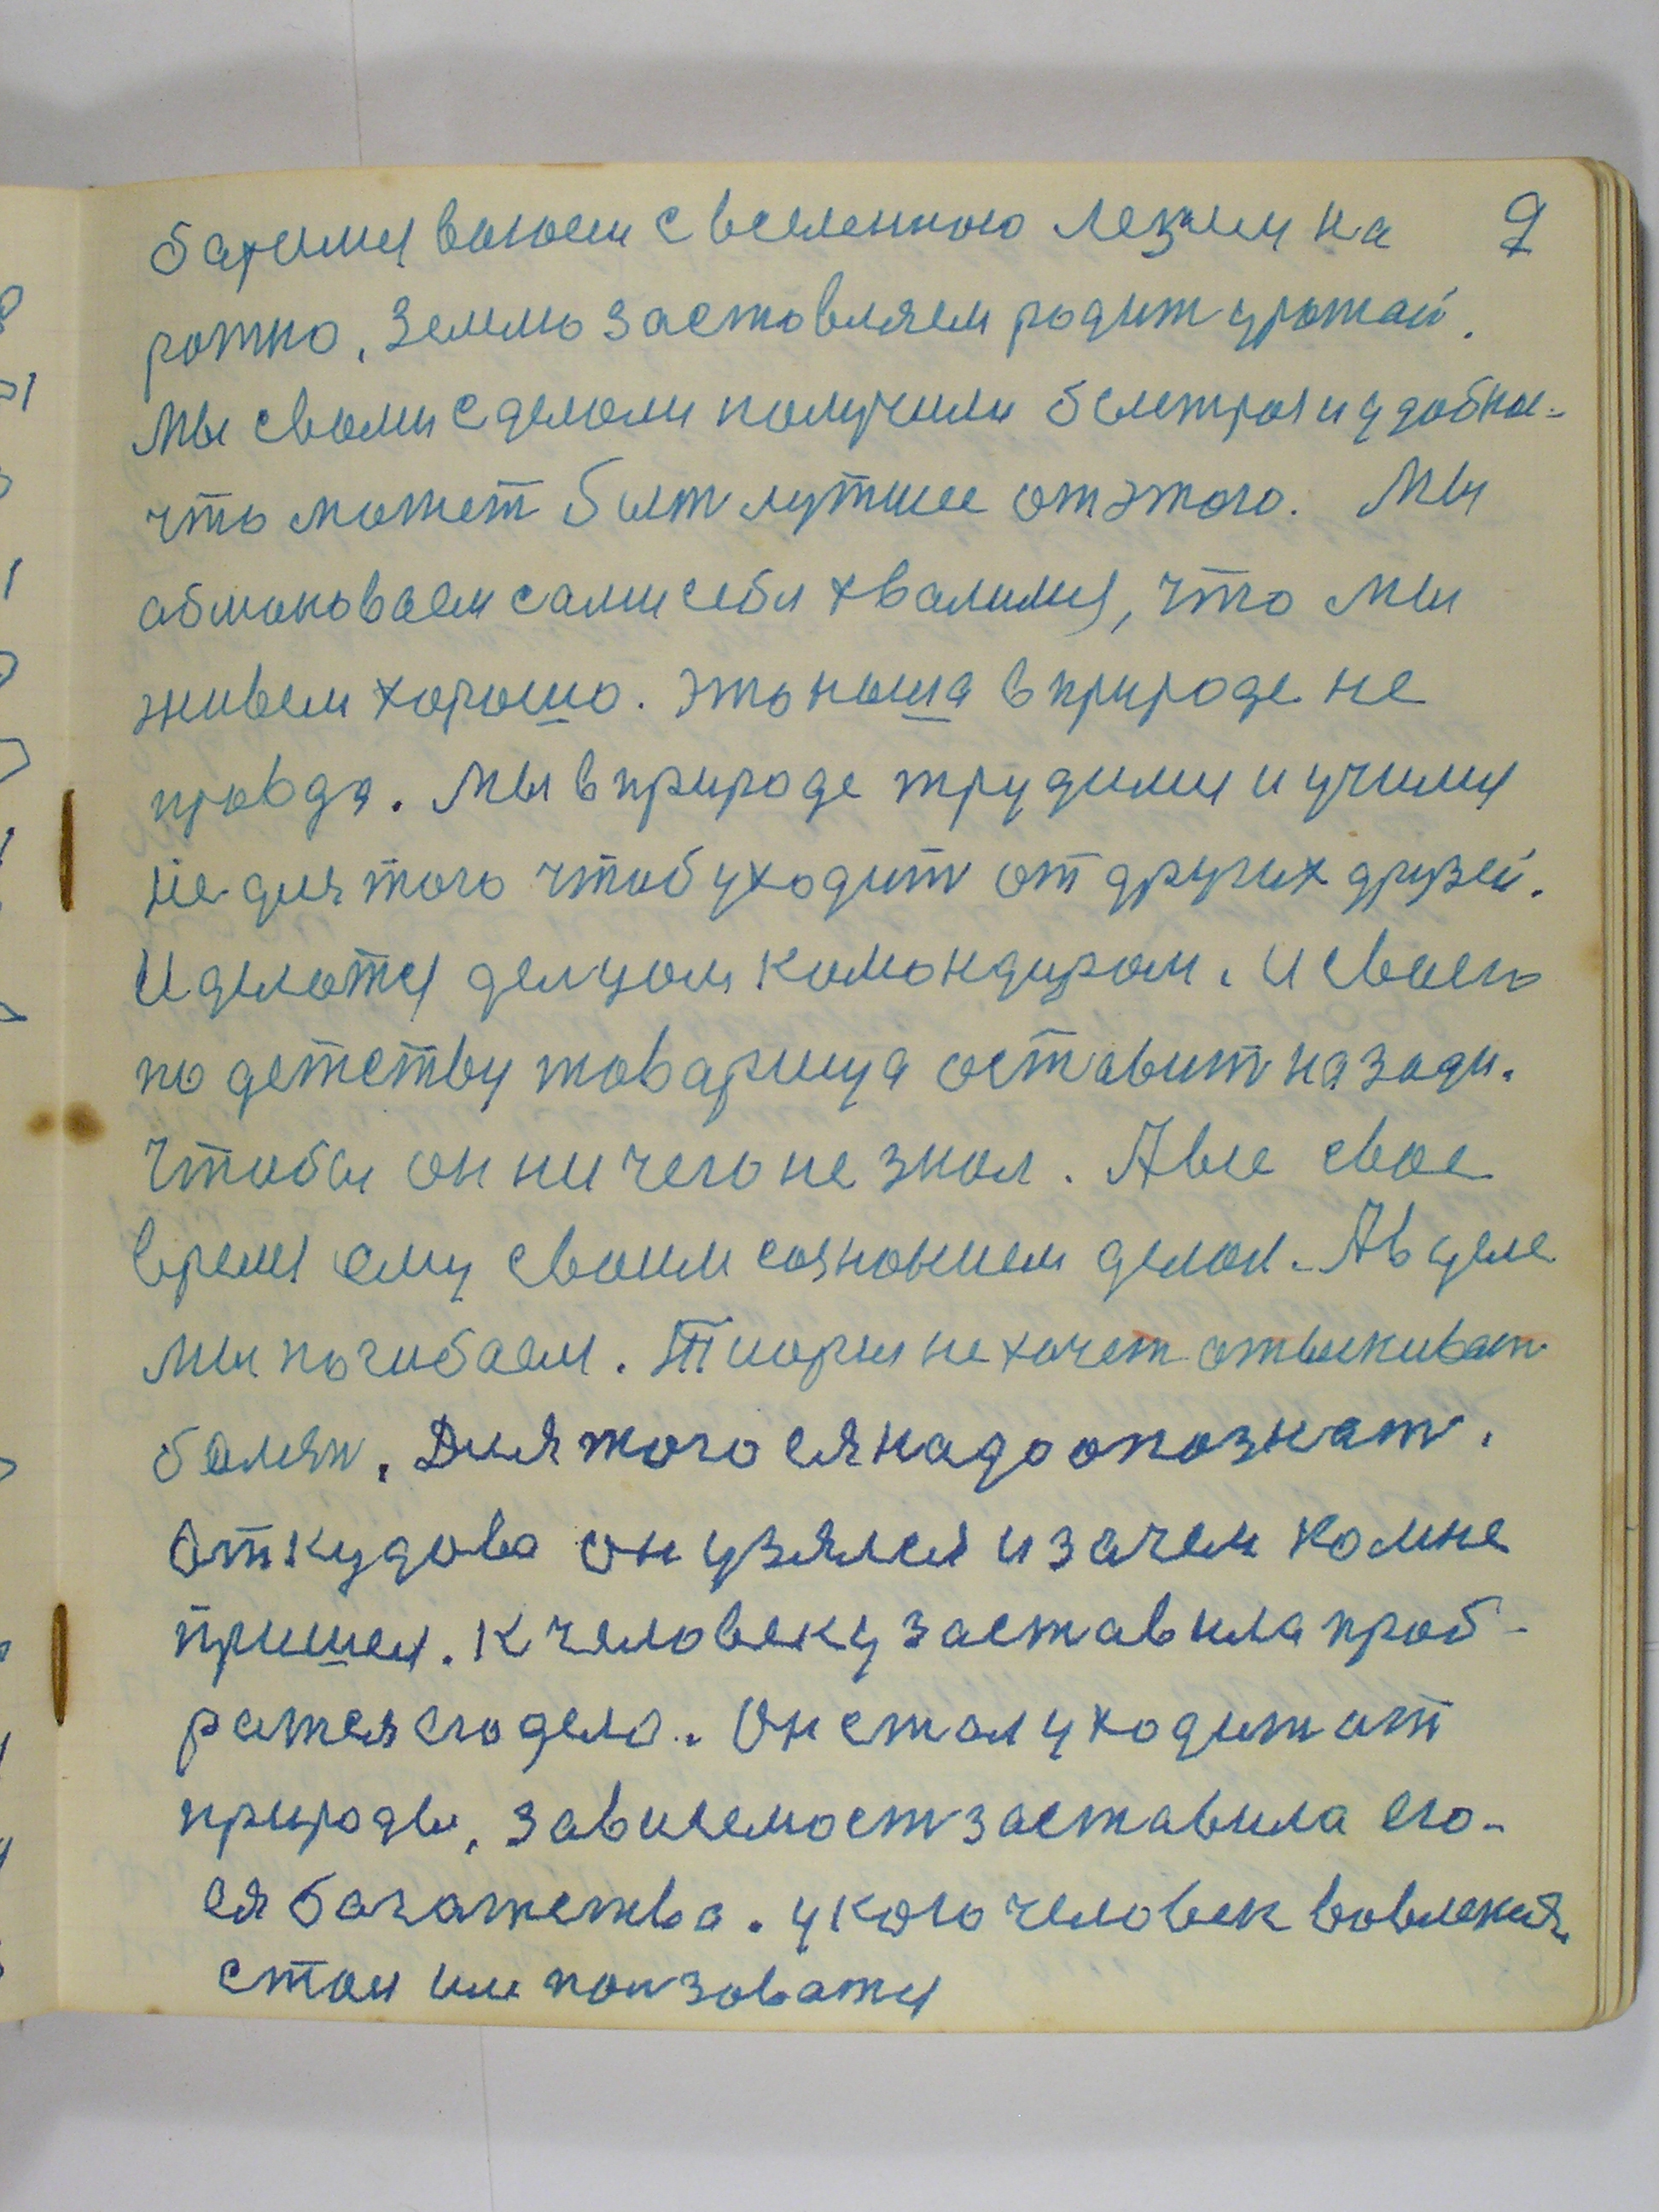 баримся воюем с вселенною лезим на 9
рожно. Землю заставляем родить урожай.
Мы своми сделали получили быстрое и удобное-
что может быть лутшее от этого. Мы
обшоковаем сами себя хвалимся, что мы
живем хорошо. Это наша в природе не
правда. Мы в природе трудимся и учимся
не для того чтоб уходить от других друзей.
И делатся делцом командиром. И своего
по детству товарища оставить на зади.
Чтобы он ни чего не знал. А все свое
время ему своим сознанием делал. А в целе
мы погибаем. Тиория не хочет отыскиват
болезн. Для того ея надо опознать.
Откудова он узялся и зачем ко мне
пришел. К человеку заставила проб-
ратся его дело. Он стал уходить от
природы. Зависемость заставила его-
ея багатества. у кого человек вовлекся
стал им ползоватся